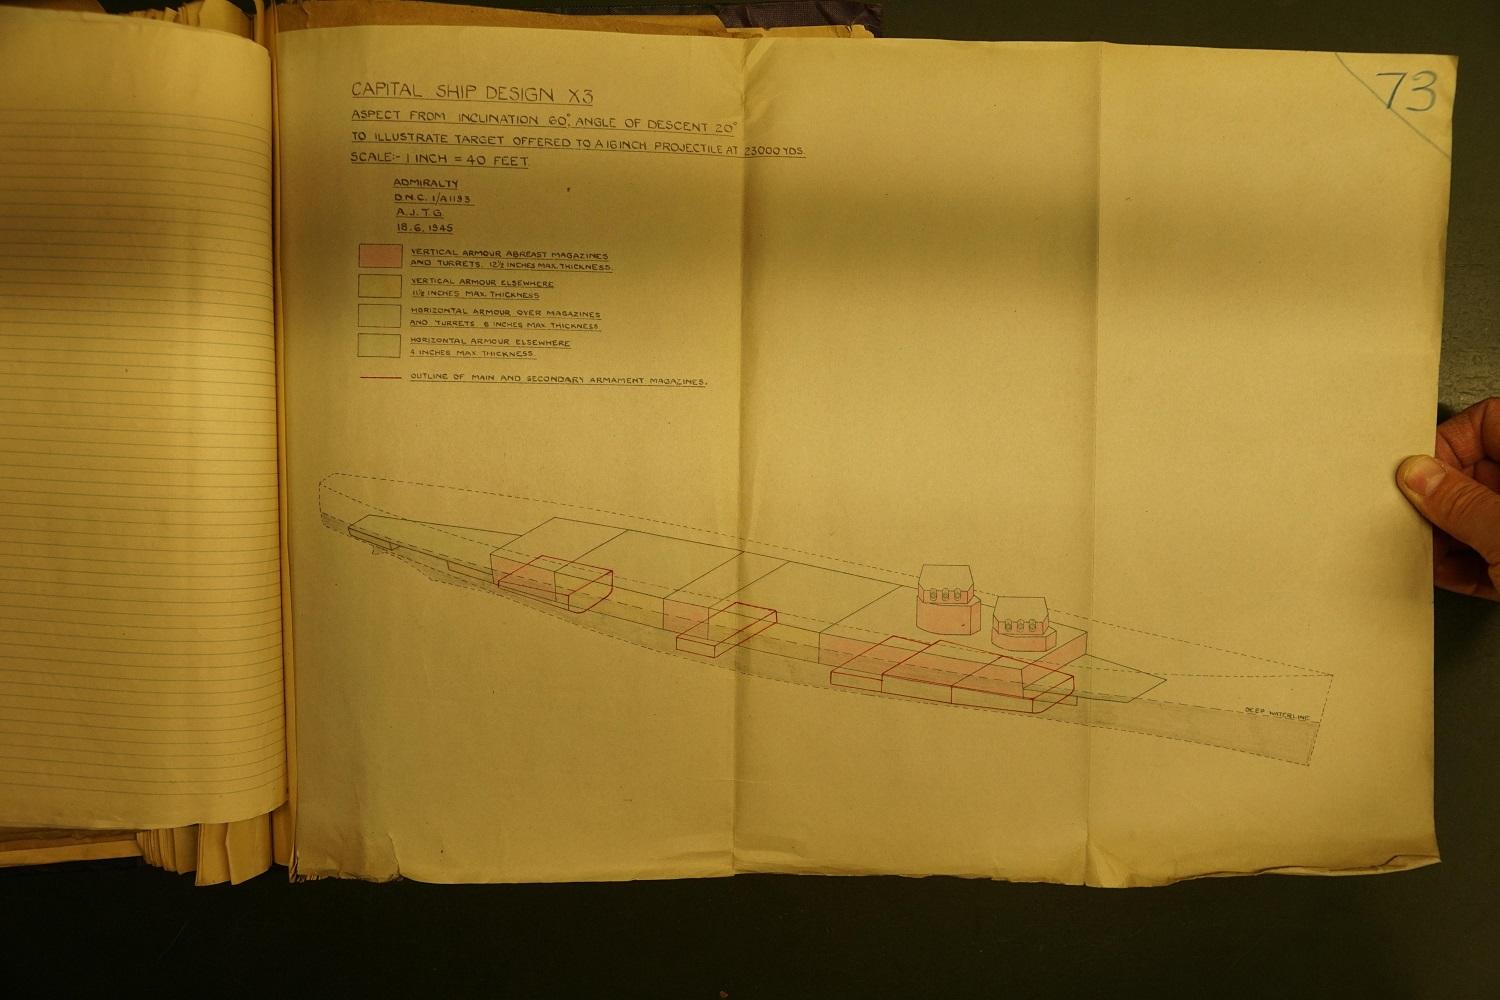 73
CAPITAL SHIP DESIGN X3
ASPECT FROM INCLINATION 60°, ANGLE OF DESCENT 20°
TO ILLUSTRATE TARGET OFFERED TO A 16 INCH PROJECTILE AT 23000 YDS.
SCALE:- 1 INCH = 40 FEET
ADMIRALTY
D.N.C. 1/A1193
A.J.T.G.
18.6.1945
VERTICAL ARMOUR ABREAST MAGAZINES
AND TURRETS. 12½ INCHES MAX. THICKNESS.
VERTICAL ARMOUR ELSEWHERE
11½ INCHES MAX. THICKNESS
HORIZONTAL ARMOUR OVER MAGAZINES
AND TURRETS 6 INCHES MAX. THICKNESS
HORIZONTAL ARMOUR ELSEWHERE
4 INCHES MAX. THICKNESS
OUTLINE OF MAIN AND SECONDARY ARMAMENT MAGAZINES.
DEEP WATERLINE